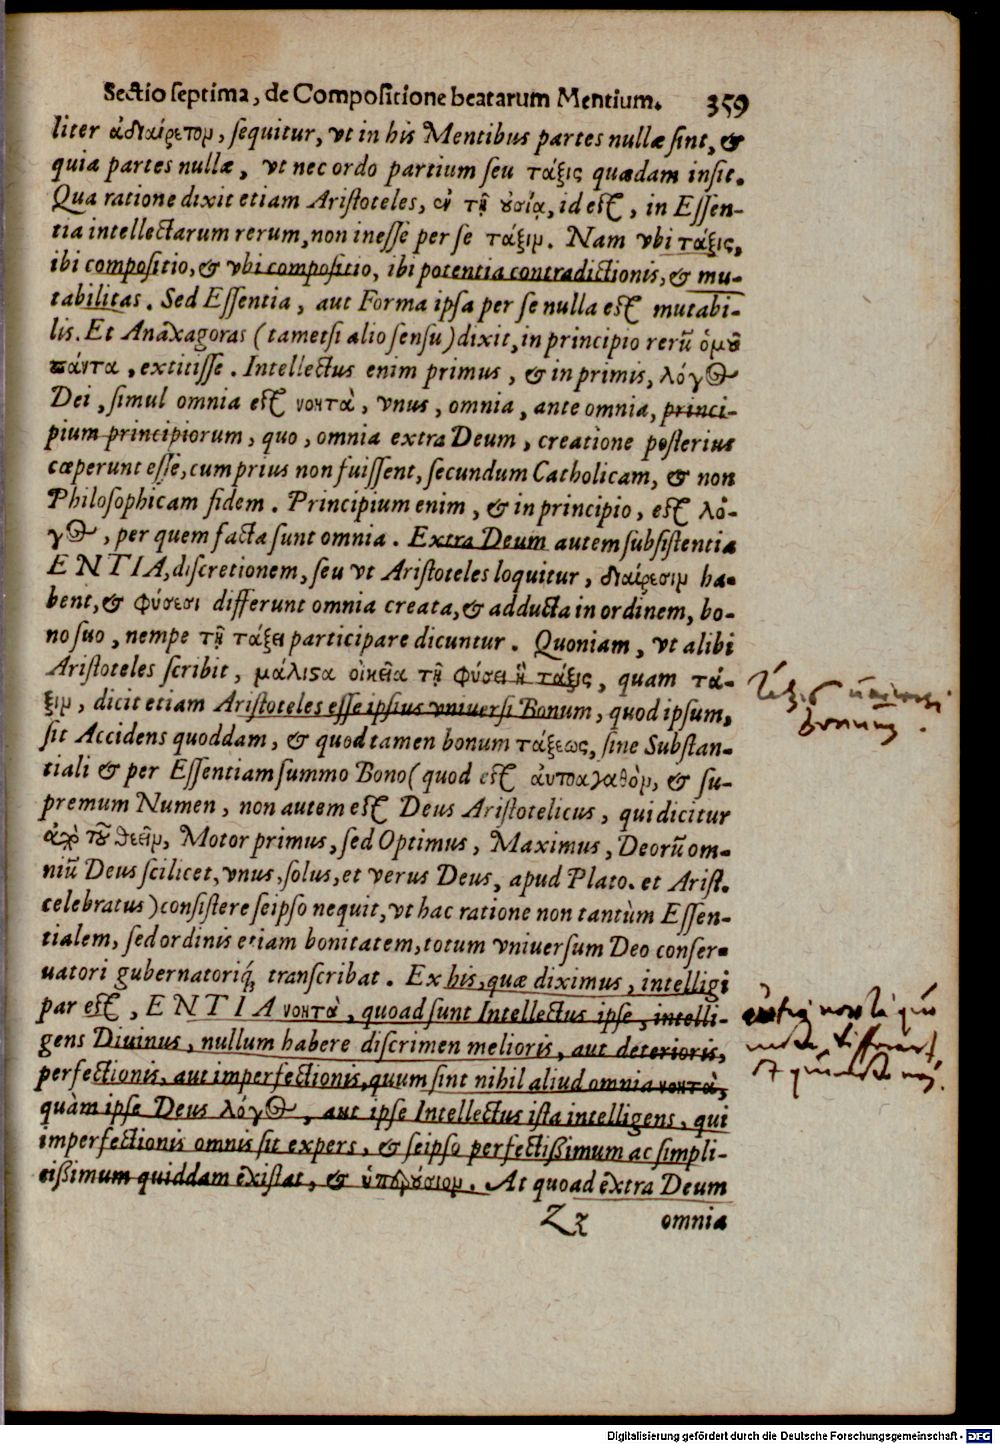 Sectio septima, de Compositione beatarum Mentium. 359
liter ἀδιαίρετον, sequitur, vt in his Mentibus partes nullæ sint, &
quia partes nullæ, vt nec ordo partium seu τάξις quædam insit.
Qua ratione dixit etiam Aristoteles, ἐν τῇ οὐσίᾳ, id est, in Essen-
tia intellectarum rerum, non inesse per se τάξιν. Nam vbi τάξις,
ibi compositio, & vbi compositio, ibi potentia contradictionis, & mu-
tabilitas. Sed Essentia, aut Forma ipsa per se nulla est mutabi-
lis. Et Anaxagoras (tametsi alio sensu) dixit, in principio rerū ὁμοῦ
πάντα, extitisse. Intellectus enim primus, & in primis, λόγος
Dei, simul omnia est νοητὰ, vnus, omnia, ante omnia, princi-
pium principiorum, quo, omnia extra Deum, creatione posterius
cœperunt esse, cum prius non fuissent, secundum Catholicam, & non
Philosophicam fidem. Principium enim, & in principio, est λό-
γος, per quem facta sunt omnia. Extra Deum autem subsistentia
ENTIA, discretionem, seu vt Aristoteles loquitur, διαίρεσιν ha-
bent, & φύσεσι differunt omnia creata, & adducta in ordinem, bo-
no suo, nempe τῇ τάξει participare dicuntur. Quoniam, vt alibi
Aristoteles scribit, μάλιστα οἰκεῖα τῇ φύσει ἡ τάξις, quam τά-
ξιν, dicit etiam Aristoteles esse ipsius vniuersi Bonum, quod ipsum,
sit Accidens quoddam, & quod tamen bonum τάξεως, sine Substan-
tiali & per Essentiam summo Bono (quod est αὐτοαγαθὸν, & su-
premum Numen, non autem est Deus Aristotelicus, qui dicitur
τοῦ θεεῖν, Motor primus, sed Optimus, Maximus, Deorū om-
niū Deus scilicet, vnus, solus, et verus Deus, apud Plato. et Arist.
celebratus) consistere seipso nequit, vt hac ratione non tantùm Essen-
tialem, sed ordinis etiam bonitatem, totum vniuersum Deo conser-
uatori gubernatoriq́; transcribat. Ex his, quæ diximus, intelligi
par est, ENTIA νοητὰ, quoad sunt Intellectus ipse, intelli-
gens Diuinus, nullum habere discrimen melioris, aut deterioris,
perfectionis, aut imperfectionis, quum sint nihil aliud omnia νοητὰ,
quàm ipse Deus λόγος, aut ipse Intellectus ista intelligens, qui
imperfectionis omnis sit expers, & seipso perfectißimum ac simpli-
cißimum quiddam existat, & ὑπερούσιον. At quoad extra Deum
Zz omnia
τάξις universi
bonum.
entia νοητὰ quo
modo differant,
et quomodo non.
Digitalisierung gefördert durch die Deutsche Forschungsgemeinschaft - DFG